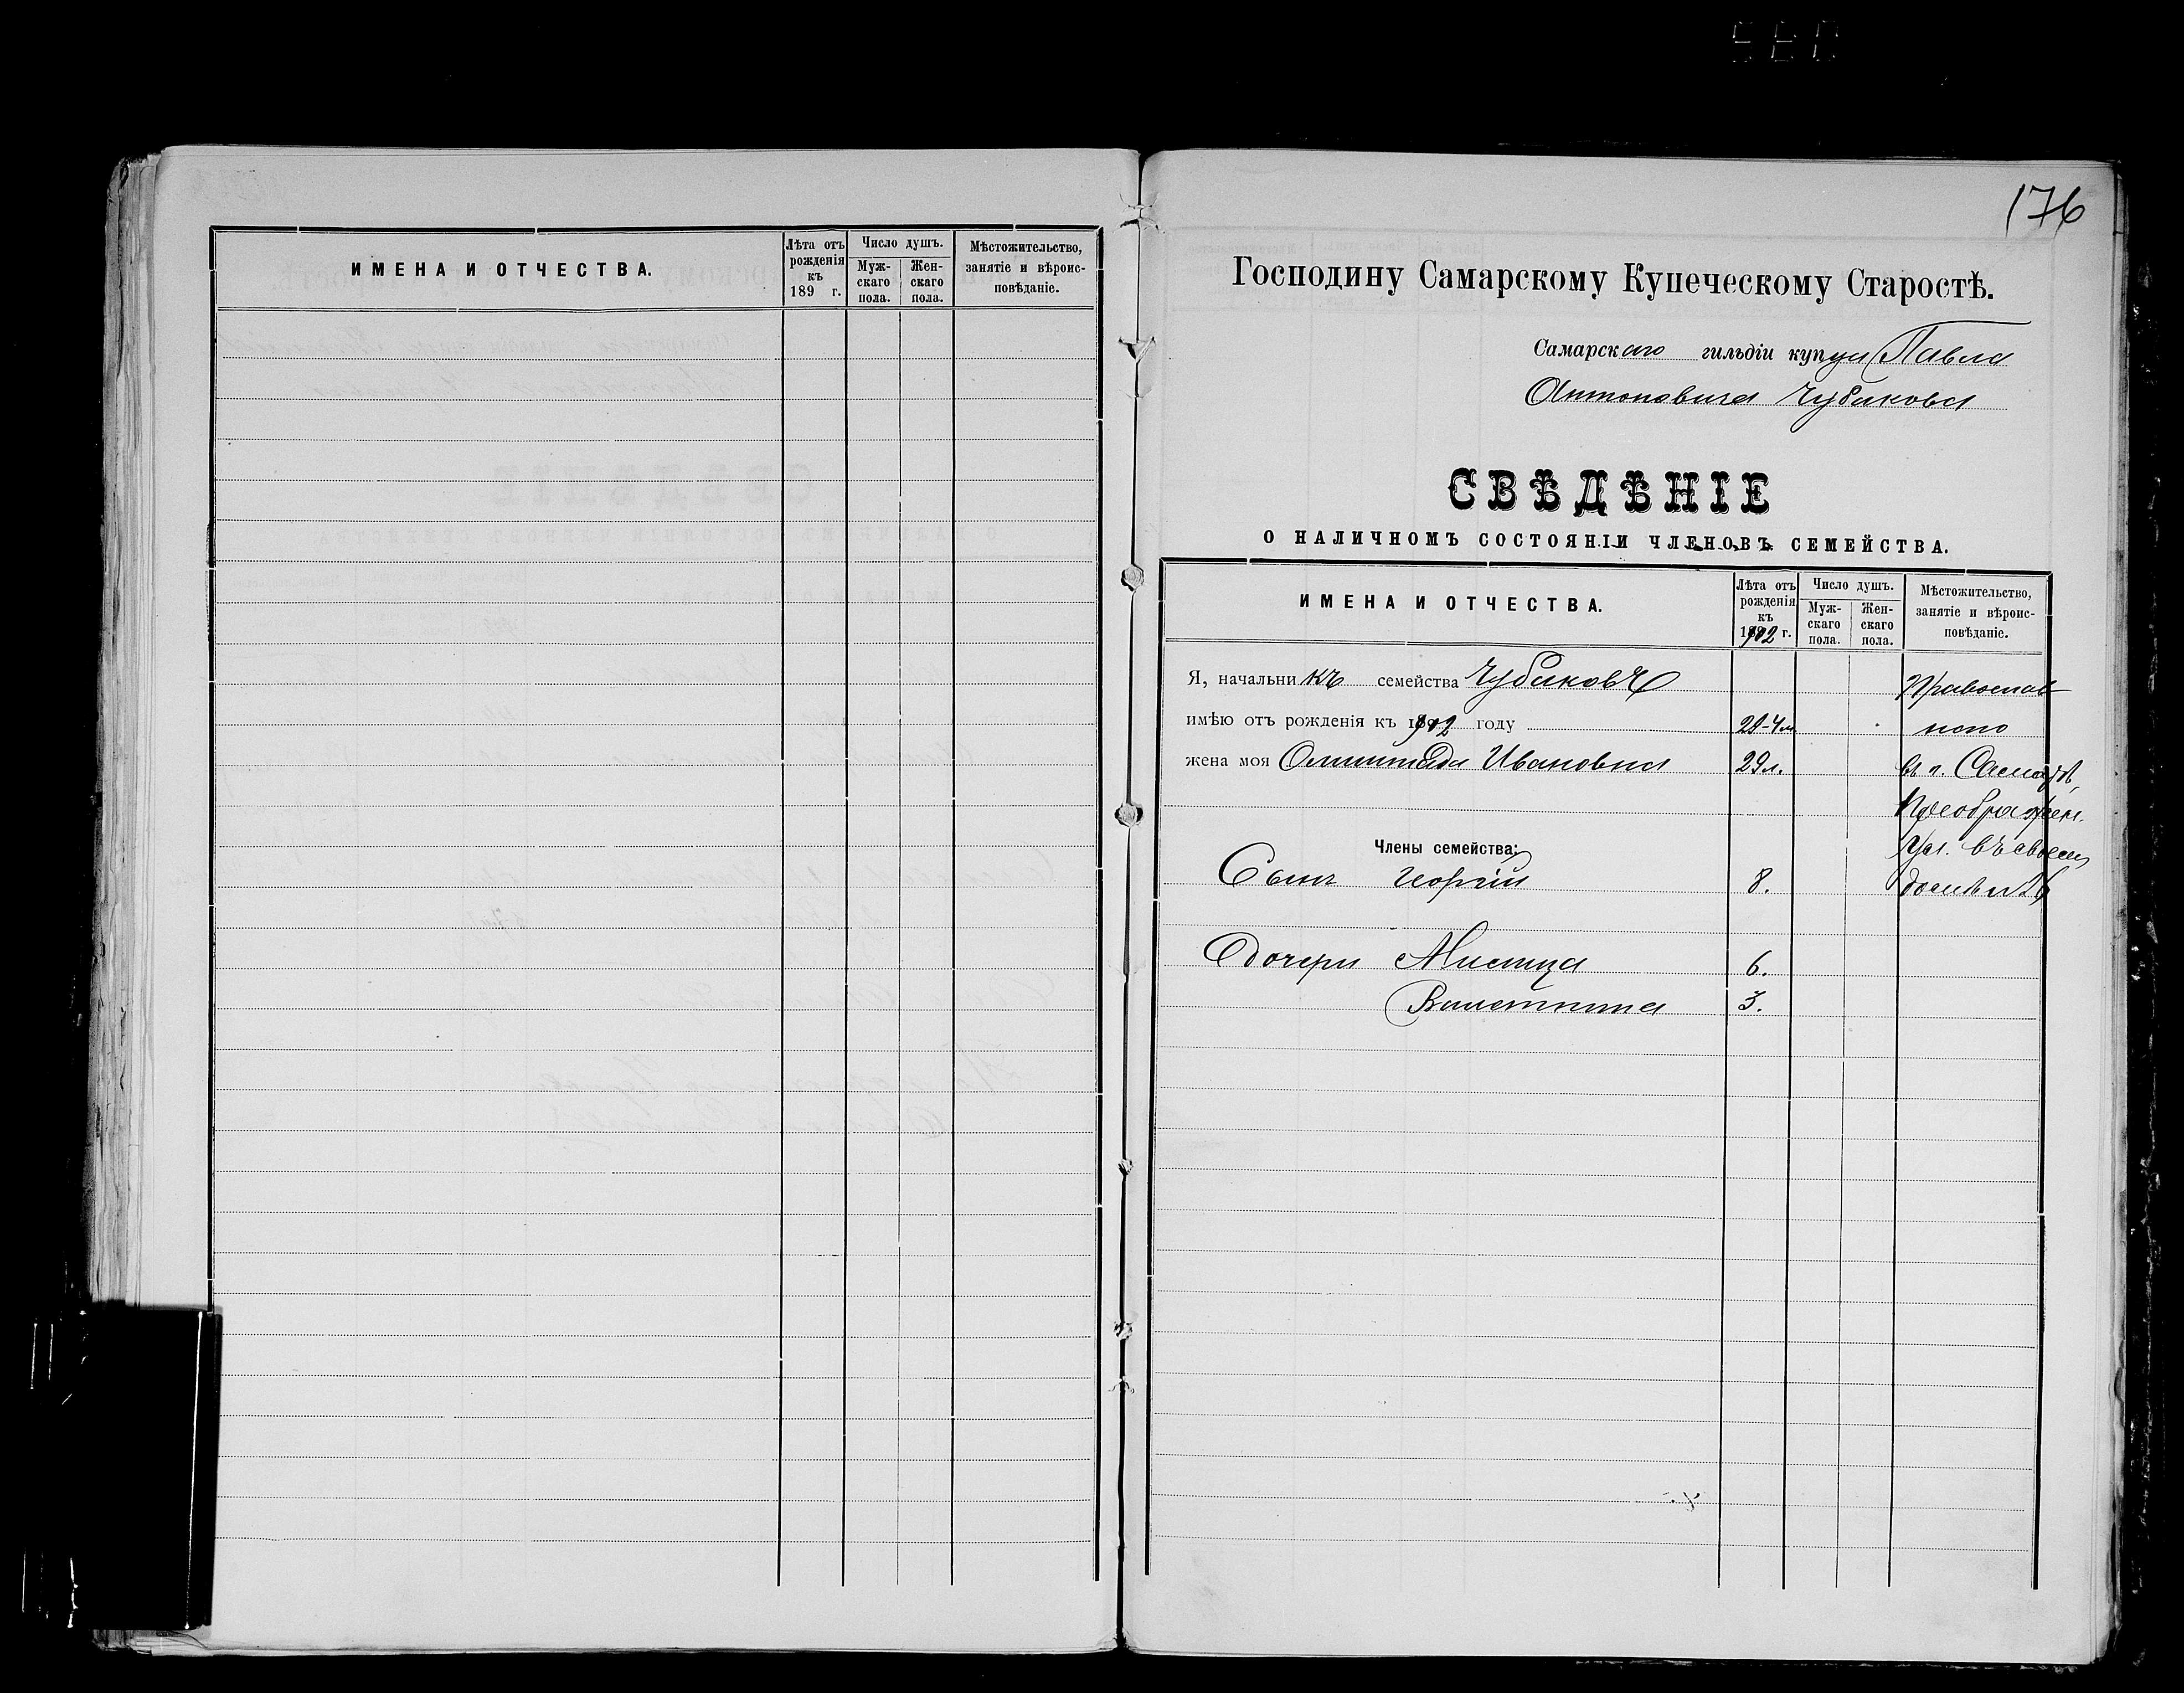 ИМЕНА И ОТЧЕСТВА.
Лѣта отъ рожденія къ 189 г.
Число душъ.
Мужскаго пола.
Женскаго пола.
Мѣстожительство, занятіе и вѣроисповѣданіе.
176
Господину Самарскому Купеческому Старостѣ.
Самарскаго гильдіи купца Павла
Антоновича Чубикова
СВѢДѢНІЕ
О НАЛИЧНОМЪ СОСТОЯНІИ ЧЛЕНОВЪ СЕМЕЙСТВА.
ИМЕНА И ОТЧЕСТВА.
Лѣта отъ рожденія къ 1902 г.
Число душъ.
Мужскаго пола.
Женскаго пола.
Мѣстожительство, занятіе и вѣроисповѣданіе.
Я, начальникъ семейства Чубиковъ Православ
имѣю отъ рожденія къ 1902 году 28-4м наго
жена моя Олимпіада Ивановна 29 л. въ г. Самарѣ,
Преображен.
Члены семейства: ул. въ своемъ
Сынъ Георгій 8. домѣ №
Дочери 6.
Валентина 3.